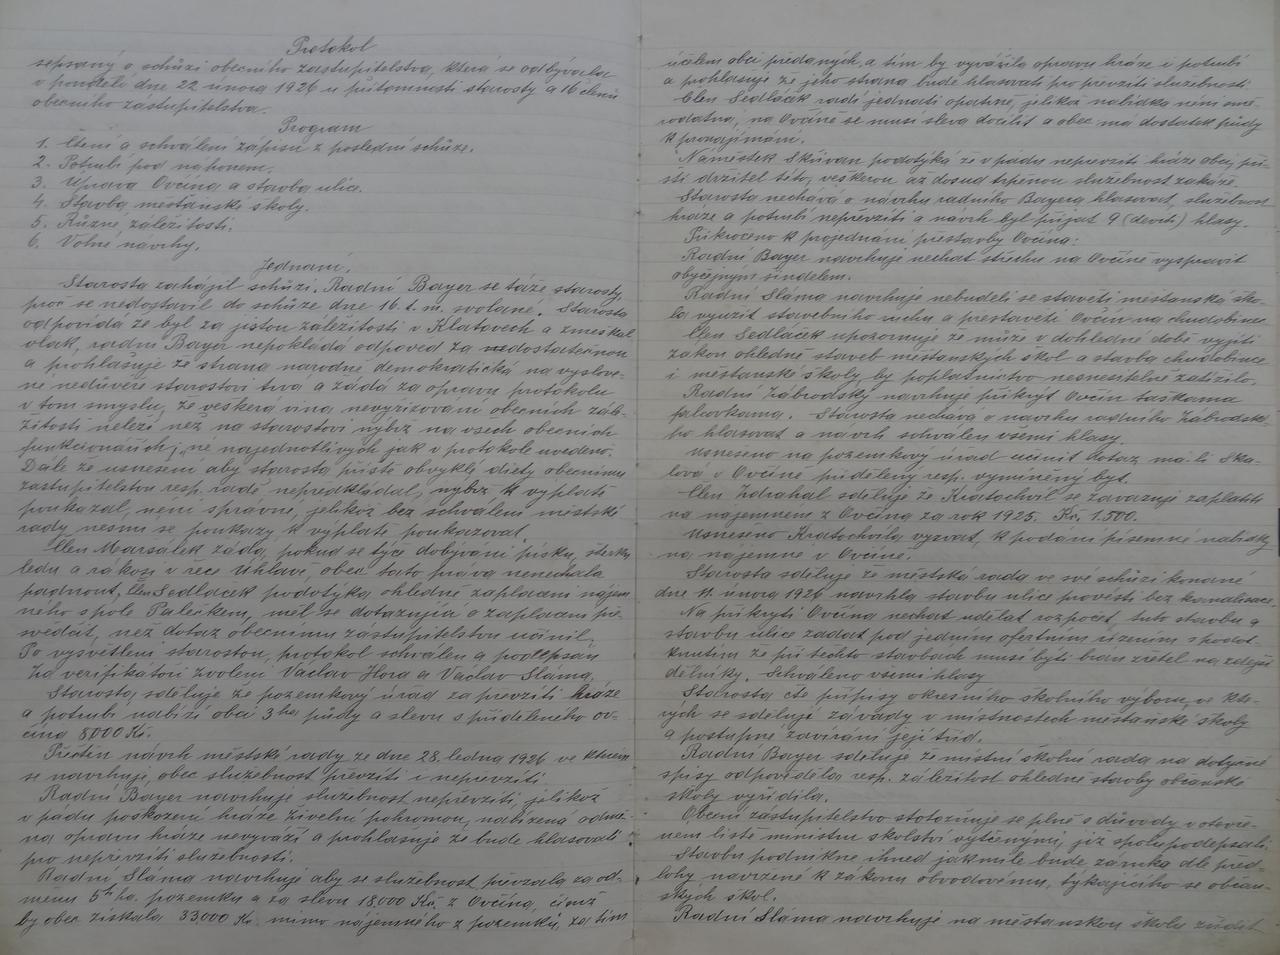 Protokol
sepsaný o schůzi obecního zastupitelstva, která se odbývala
v pondělí dne 22 února 1926 u přítomnosti starosty a 16 členů
obecního zastupitelstva.
Program
1. Čtení a schválení zápisu z poslední schůze.
2. Potrubí pod náhonem.
3. Úprava Ovčína a stavba ulice.
4. Stavba měšťanské školy.
5. Různé záležitosti.
6. Volné návrhy.
Jednání.
Starosta zahájil schůzi. Radní Bayer se táže starosty,
proč se nedostavil do schůze dne 16. t. m. svolané. Starosta
odpovídá že byl za jistou záležitostí v Klatovech a zmeškal
vlak, radní Bayer nepokládá odpověď za dostatečnou
a prohlašuje že strana národně demokratická na vyslove-
né nedůvěře starostovi trvá a žádá za opravu protokolu
v tom smyslu, že veškerá vina nevyřizování obecních zále-
žitostí neleží než na starostovi nýbrž na všech obecních
funkcionářích, né na jednotlivých jak v protokole uvedeno.
Dále že usnesení aby starosta příště obvyklé diety obecnímu
zastupitelstvu resp. radě nepředkládal, nýbrž k výplatě
poukázal, není správné, jelikož bez schválení městské
rady nesmí se poukazy k výplatě poukazovat.
Člen Maršálek žádá, pokud se týče dobývání písku, štěrku
ledu a rákosí v řece Úhlavě, obec tato práva nenechala
padnout, člen Sedláček podotýká ohledně zaplacení nájem-
ného s pole Palečkem, měl se dotazující o zaplacení pře-
svědčit, než dotaz obecnímu zástupitelstvu učinil.
Po vysvětlení starostou, protokol schválen a podepsán
Za verifikátoři zvoleni Václav Hora a Václav Sláma.
Starosta sděluje že pozemkový úřad za převzetí hráze
a potrubí nabízí obci 3 ha půdy a slevu s přiděleného ov-
čína 8000 Kč.
Přečten návrh městské rady ze dne 28. ledna 1926 ve kterém
se navrhuje, obec služebnost převzíti i nepřevzíti.
Radní Bayer navrhuje služebnost nepřevzíti, jelikož
v pádu poškození hráze živelní pohromou, nabízená odmě-
na opravu hráze nevyváží a prohlašuje že bude hlasovati
pro nepřevzetí služebnosti.
Radní Sláma navrhuje aby se služebnost převzala za od-
měnu 5ti ha. pozemku a za slevu 18.000 Kč. z Ovčína, čímž
by obec získala 33000 Kč. mimo nájemného z pozemků, za tím
účelem obci předaných, a tím by vyvážila opravu hráze i potrubí
a pohlašuje že jeho strana bude hlasovati pro převzetí služebnosti.
Člen Sedláček radí jednati opatrně, jelikož nabídka není smě-
rodatná, na Ovčíně se musí sleva docílit a obec má dostatek půdy
k pronajímání.
Náměstek Skřivan podotýká že v pádu nepřevzetí hráze obcí, pří-
ští držitel této, veškerou až dosud trpěnou služebnost zakáže.
Starosta nechává o návrhu radního Bayera hlasovat, služebnost
hráze a potrubí nepřevzíti a návrh byl přijat 9 (devíti) hlasy.
Přikročeno k projednání přestavby Ovčína:
Radní Bayer navrhuje nechat střechu na Ovčíně vyspravit
obyčejným šindelem.
Radní Sláma navrhuje nebudeli se stavěti měšťanská ško-
la využít stavebního ruchu a přestavěti Ovčín na chudobinec
Člen Sedláček upozorňuje že může v dohledné době vyjíti
zákon ohledně staveb měšťanských škol a stavba chudobince
i měšťanské školy, by poplatnictvo nesnesitelně zatížilo.
Radní Zábrodský navrhuje přikrýt Ovčín taškama
falcovkama. Starosta nechává o návrhu radního Zábrodské-
ho hlasovat a návrh schválen všemi hlasy.
Usneseno na pozemkový úřad učinit dotaz má-li Ska-
lová v Ovčíně přidělený resp. vyměněný byt.
Člen Zdráhal sděluje že Kratochvíl se zavazuje zaplatit
na nájemném z Ovčína za rok 1925. Kč. 1.500.
Usnešeno Kratochvíla vyzvat, k podání písemné nabídky
na nájemné v Ovčíně.
Starosta sděluje že městská rada ve své schůzi konané
dne 11. února 1926 navrhla stavbu ulice provésti bez kanalisace.
Na přikrytí Ovčína nechat udělat rozpočet, tuto stavbu a
stavbu ulice zadat pod jedním ofertním řízením s podot-
knutím že při těchto stavbách musí býti brán zřetel na zdejší
dělníky. Schváleno všemi hlasy
Starosta čte přípisy okresního školního výboru, ve kte-
rých se sdělují závady v místnostech měšťanské školy
a postupné zavírání její tříd.
Radní Bayer sděluje že místní školní rada na dotyčné
spisy odpověděla resp. záležitost ohledně stavby občanské
školy vyřídila.
Obecní zástupitelstvo stotožňuje se plně s důvody v otevře-
ném listě ministru školství vytčenými, jíž spolupodepsali.
Stavbu podnikne ihned jakmile bude záruka dle před-
lohy navržené k zákonu obvodovému, týkajícího se občan-
ských škol.
Radní Sláma navrhuje na měšťanskou školu zřídit